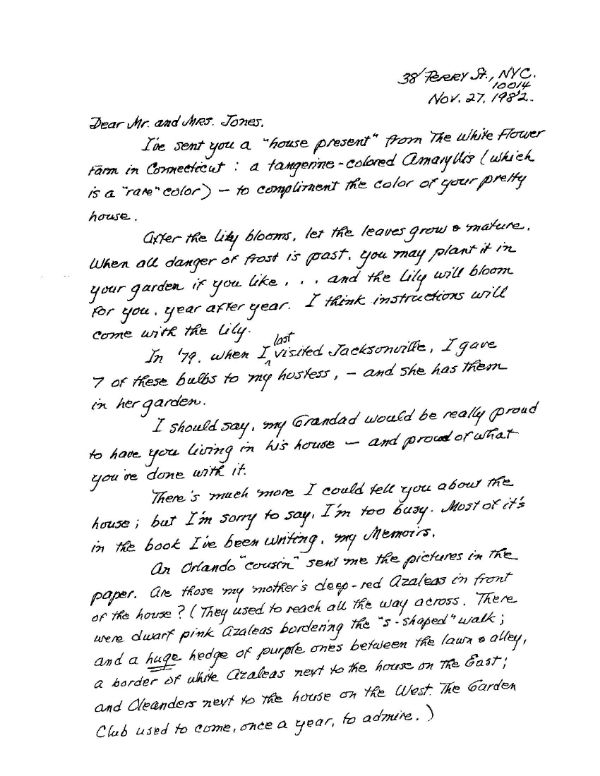 38 Perry St., NYC.
10014
Nov. 27, 1982.
Dear Mr. and Mrs. Jones,
I've sent you a "house present" from The White Flower
Farm in Connecticut : a tangerine-colored Amaryllis (which
is a "rare" color) – to compliment the color of your pretty
house.
After the lily blooms, let the leaves grow & mature.
When all danger of frost is past, you may plant it in
your garden if you like, . . . and the Lily will bloom
for you, year after year. I think instructions will
come with the lily.
In '79, when I last visited Jacksonville, I gave
7 of these bulbs to my hostess, – and she has them
in her garden.
I should say, my Grandad would be really proud
to have you living in his house – and proud of what
you've done with it.
There's much more I could tell you about the
house; but I'm sorry to say, I'm too busy. Most of it's
in the book I've been writing, my Memoirs.
An Orlando "cousin" sent me the pictures in the
paper. Are those my mother's deep-red Azaleas in front
of the house? (They used to reach all the way across. There
were dwarf pink Azaleas bordering the "s-shaped" walk;
and a huge hedge of purple ones between the lawn & alley,
a border of white Azaleas next to the house on the East;
and Oleanders next to the house on the West. The Garden
Club used to come, once a year, to admire.)